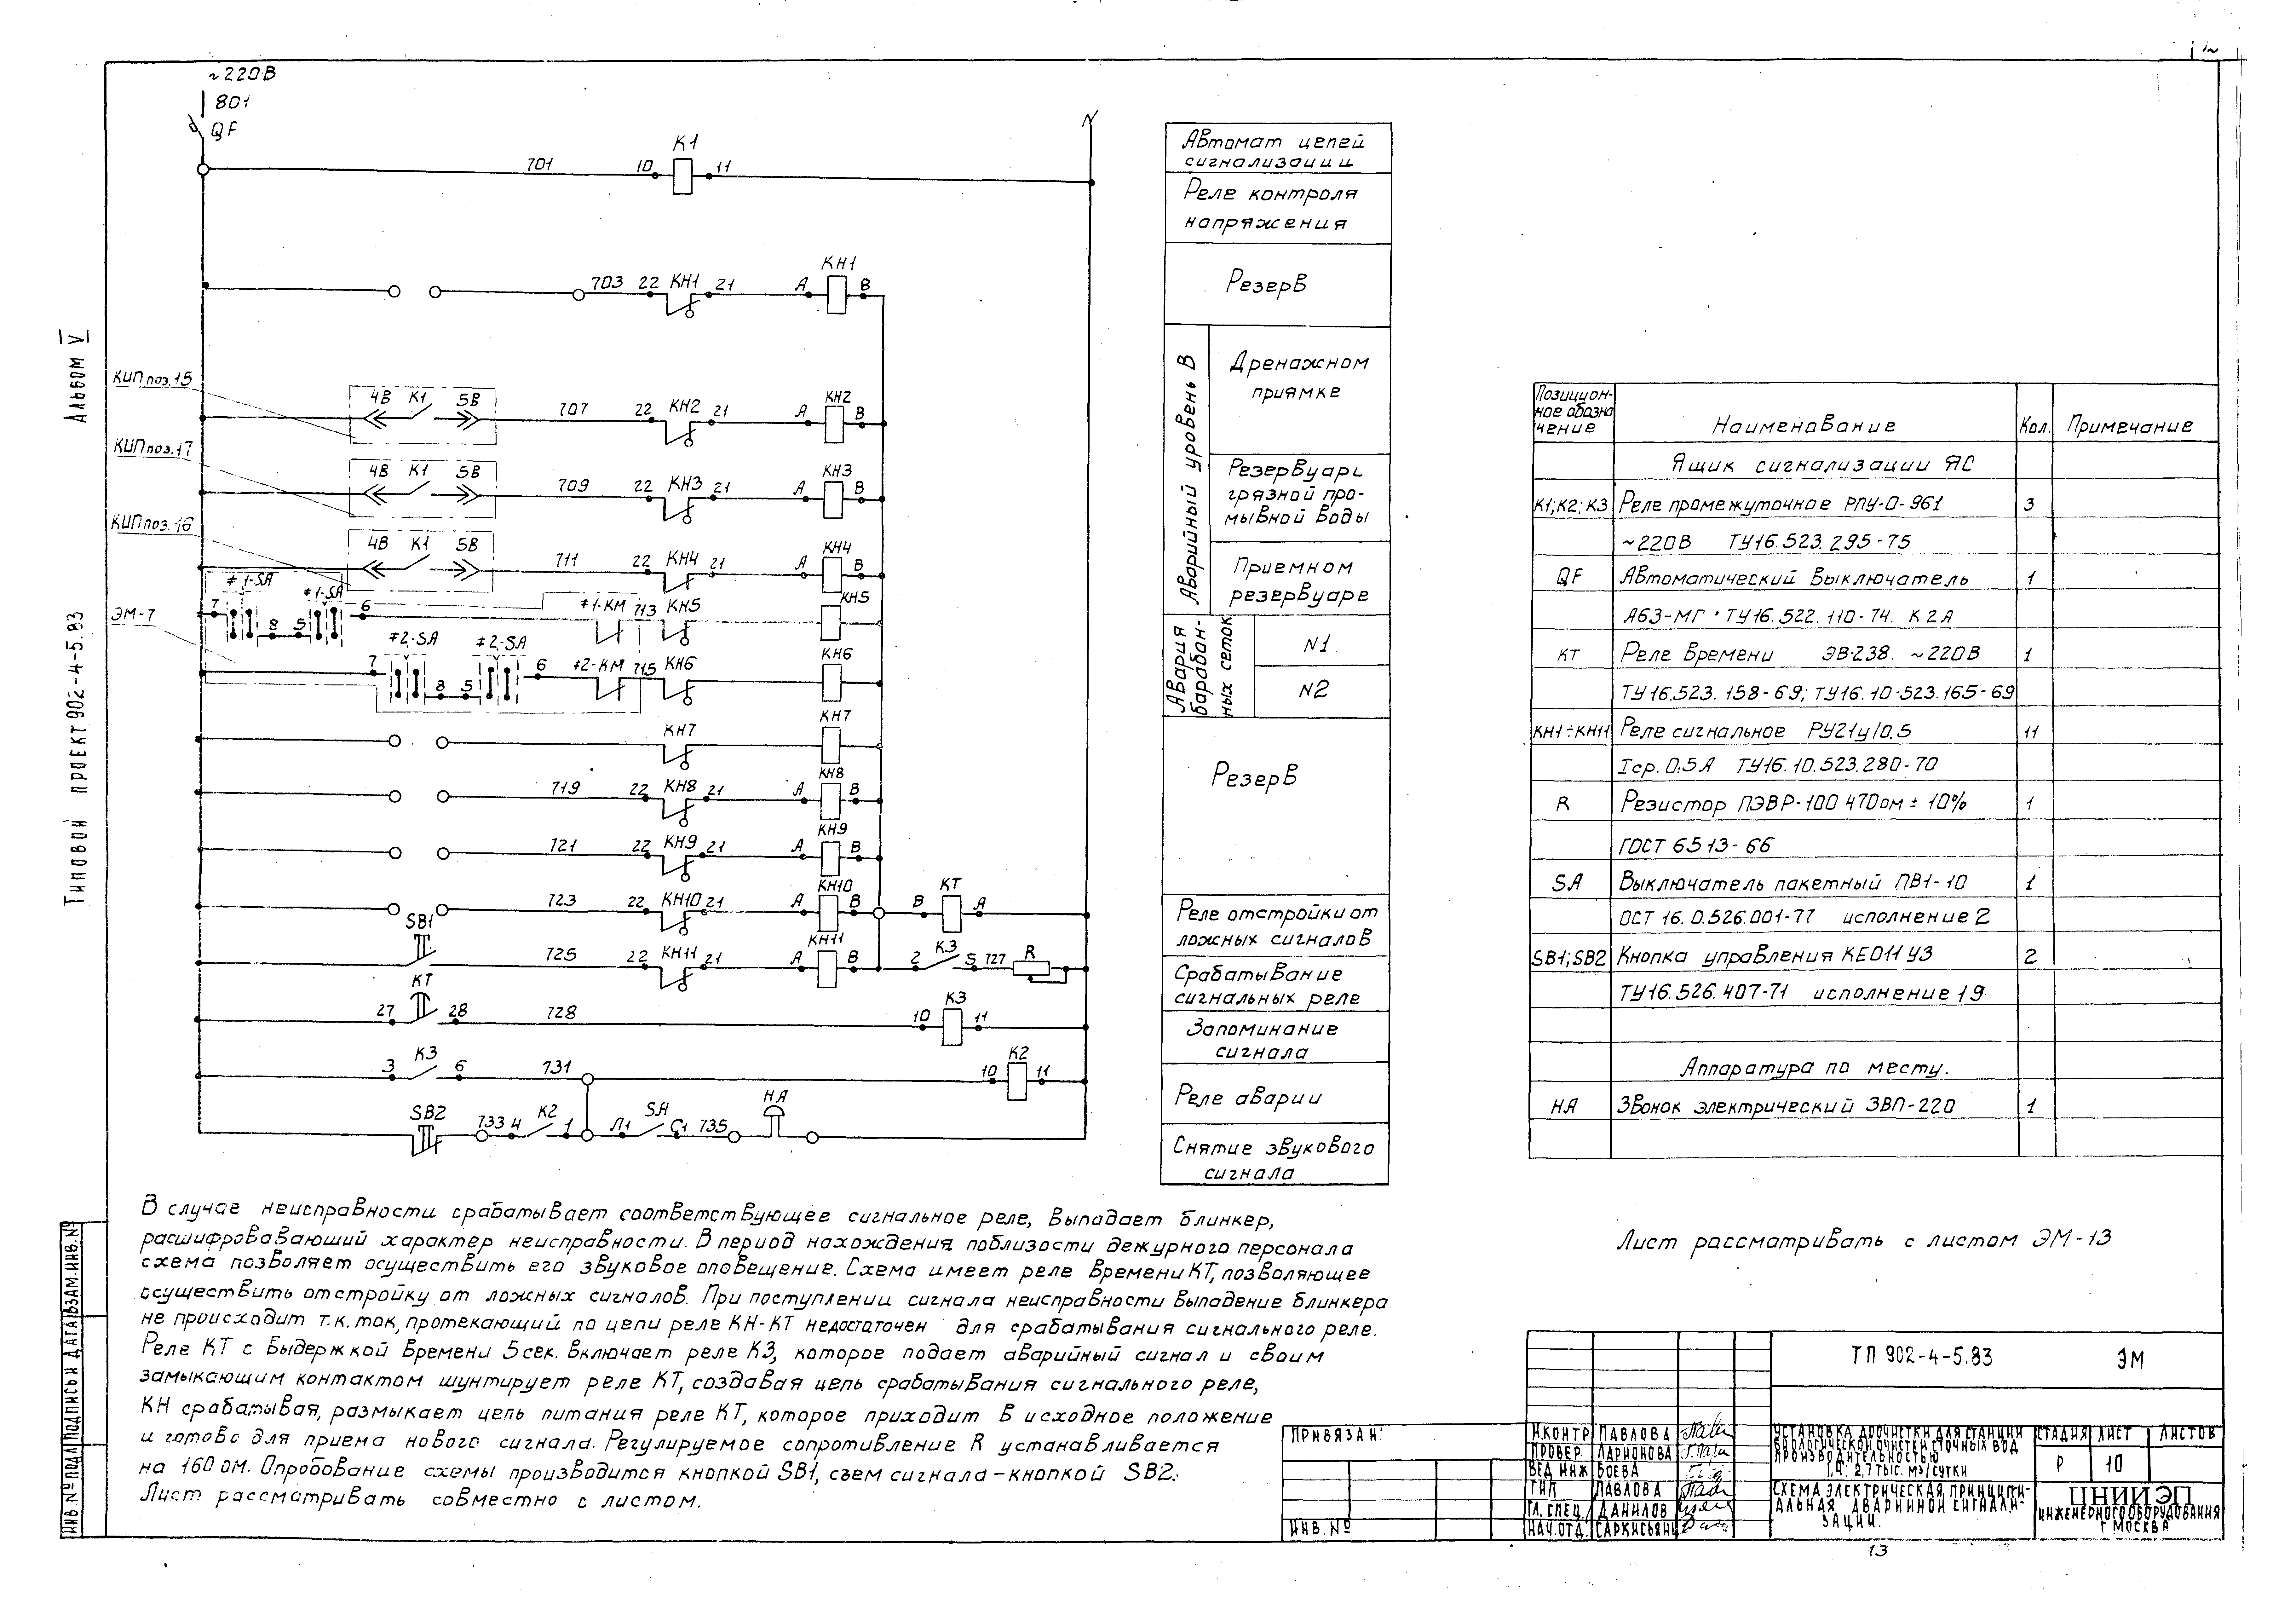 12
Альбом V
Типовой проект 902-4-5.83
ИНВ.№ ПОДЛ.
ПОДПИСЬ И ДАТА
ВЗАМ.ИНВ.№
~220В
801
QF
N
701
10
К1
11
703
22
КН1
21
А
КН1
В
КИП поз.15
4В
К1
5В
707
22
КН2
21
А
КН2
В
КИП поз.17
4В
К1
5В
709
22
КН3
21
А
КН3
В
КИП поз.16
4В
К1
5В
711
22
КН4
21
А
КН4
В
ЭМ-7
7
≠1-SA
8
5
≠1-SA
6
≠1-КМ
713
КН5
КН5
7
≠2-SA
8
5
≠2-SA
6
≠2-КМ
715
КН6
КН6
КН7
КН7
719
22
КН8
21
А
КН8
В
721
22
КН9
21
А
КН9
В
723
22
КН10
21
А
КН10
В
В
КТ
А
SB1
725
22
КН11
21
А
КН11
В
2
К3
5
727
R
КТ
27
28
728
10
К3
11
3
К3
6
731
10
К2
11
SB2
733
4
К2
1
Л1
SA
С1
735
НА
Автомат цепей
сигнализации
Реле контроля
напряжения
Резерв
Аварийный уровень в
Дренажном
приямке
Резервуаре
грязной про-
мывной воды
Приемном
резервуаре
Авария
барабан-
ных сеток
N1
N2
Резерв
Реле отстройки от
ложных сигналов
Срабатывание
сигнальных реле
Запоминание
сигнала
Реле аварии
Снятие звукового
сигнала
Позицион-
ное обозна
чение
Наименование
Кол.
Примечание
Ящик сигнализации ЯС
К1; К2; К3 Реле промежуточное РПУ-0-961 3
~220В ТУ16.523.295-75
QF Автоматический выключатель 1
А63-МГ · ТУ16.522.110-74. К 2А
КТ Реле времени ЭВ-238. ~220В 1
ТУ16.523.158-69; ТУ16.10.523.165-69
КН1÷КН11 Реле сигнальное РУ21У/0.5 11
Iср.0.5А ТУ16.10.523.280-70
R Резистор ПЭВР-100 470ом ± 10% 1
ГОСТ 6513-66
SA Выключатель пакетный ПВ1-10 1
ОСТ 16.0.526.001-77 исполнение 2
SB1; SB2 Кнопка управления КЕ011 У3 2
ТУ16.526.407-71 исполнение 19.
Аппаратура по месту.
НА Звонок электрический ЗВП-220 1
В случае неисправности срабатывает соответствующее сигнальное реле, выпадает блинкер,
расшифровывающий характер неисправности. В период нахождения поблизости дежурного персонала
схема позволяет осуществить его звуковое оповещение. Схема имеет реле времени КТ, позволяющее
осуществить отстройку от ложных сигналов. При поступлении сигнала неисправности выпадение блинкера
не происходит т.к. ток, протекающий по цепи реле КН-КТ недостаточен для срабатывания сигнального реле.
Реле КТ с выдержкой времени 5 сек. включает реле К3, которое подает аварийный сигнал и своим
замыкающим контактом шунтирует реле КТ, создавая цепь срабатывания сигнального реле,
КН срабатывая, размыкает цепь питания реле КТ, которое приходит в исходное положение
и готово для приема нового сигнала. Регулируемое сопротивление R устанавливается
на 160 ом. Опробование схемы производится кнопкой SB1, съем сигнала – кнопкой SB2.
Лист рассматривать совместно с листом.
Лист рассматривать с листом ЭМ-13
ПРИВЯЗАН:
ИНВ.№
ТП 902-4-5.83 ЭМ
Н.КОНТР ПАВЛОВА
ПРОВЕР. ЛАРИОНОВА
ВЕД.ИНЖ БОЕВА
ГИП ПАВЛОВА
ГЛ.СПЕЦ. ДАНИЛОВ
НАЧ.ОТД. САРКИСЬЯНЦ
УСТАНОВКА ДООЧИСТКИ ДЛЯ СТАНЦИИ
БИОЛОГИЧЕСКОЙ ОЧИСТКИ СТОЧНЫХ ВОД
ПРОИЗВОДИТЕЛЬНОСТЬЮ
1,4; 2,7 ТЫС. М3/СУТКИ
СТАДИЯ ЛИСТ ЛИСТОВ
Р 10
СХЕМА ЭЛЕКТРИЧЕСКАЯ ПРИНЦИПИ-
АЛЬНАЯ АВАРИЙНОЙ СИГНАЛИ-
ЗАЦИИ.
ЦНИИЭП
ИНЖЕНЕРНОГО ОБОРУДОВАНИЯ
Г.МОСКВА
13